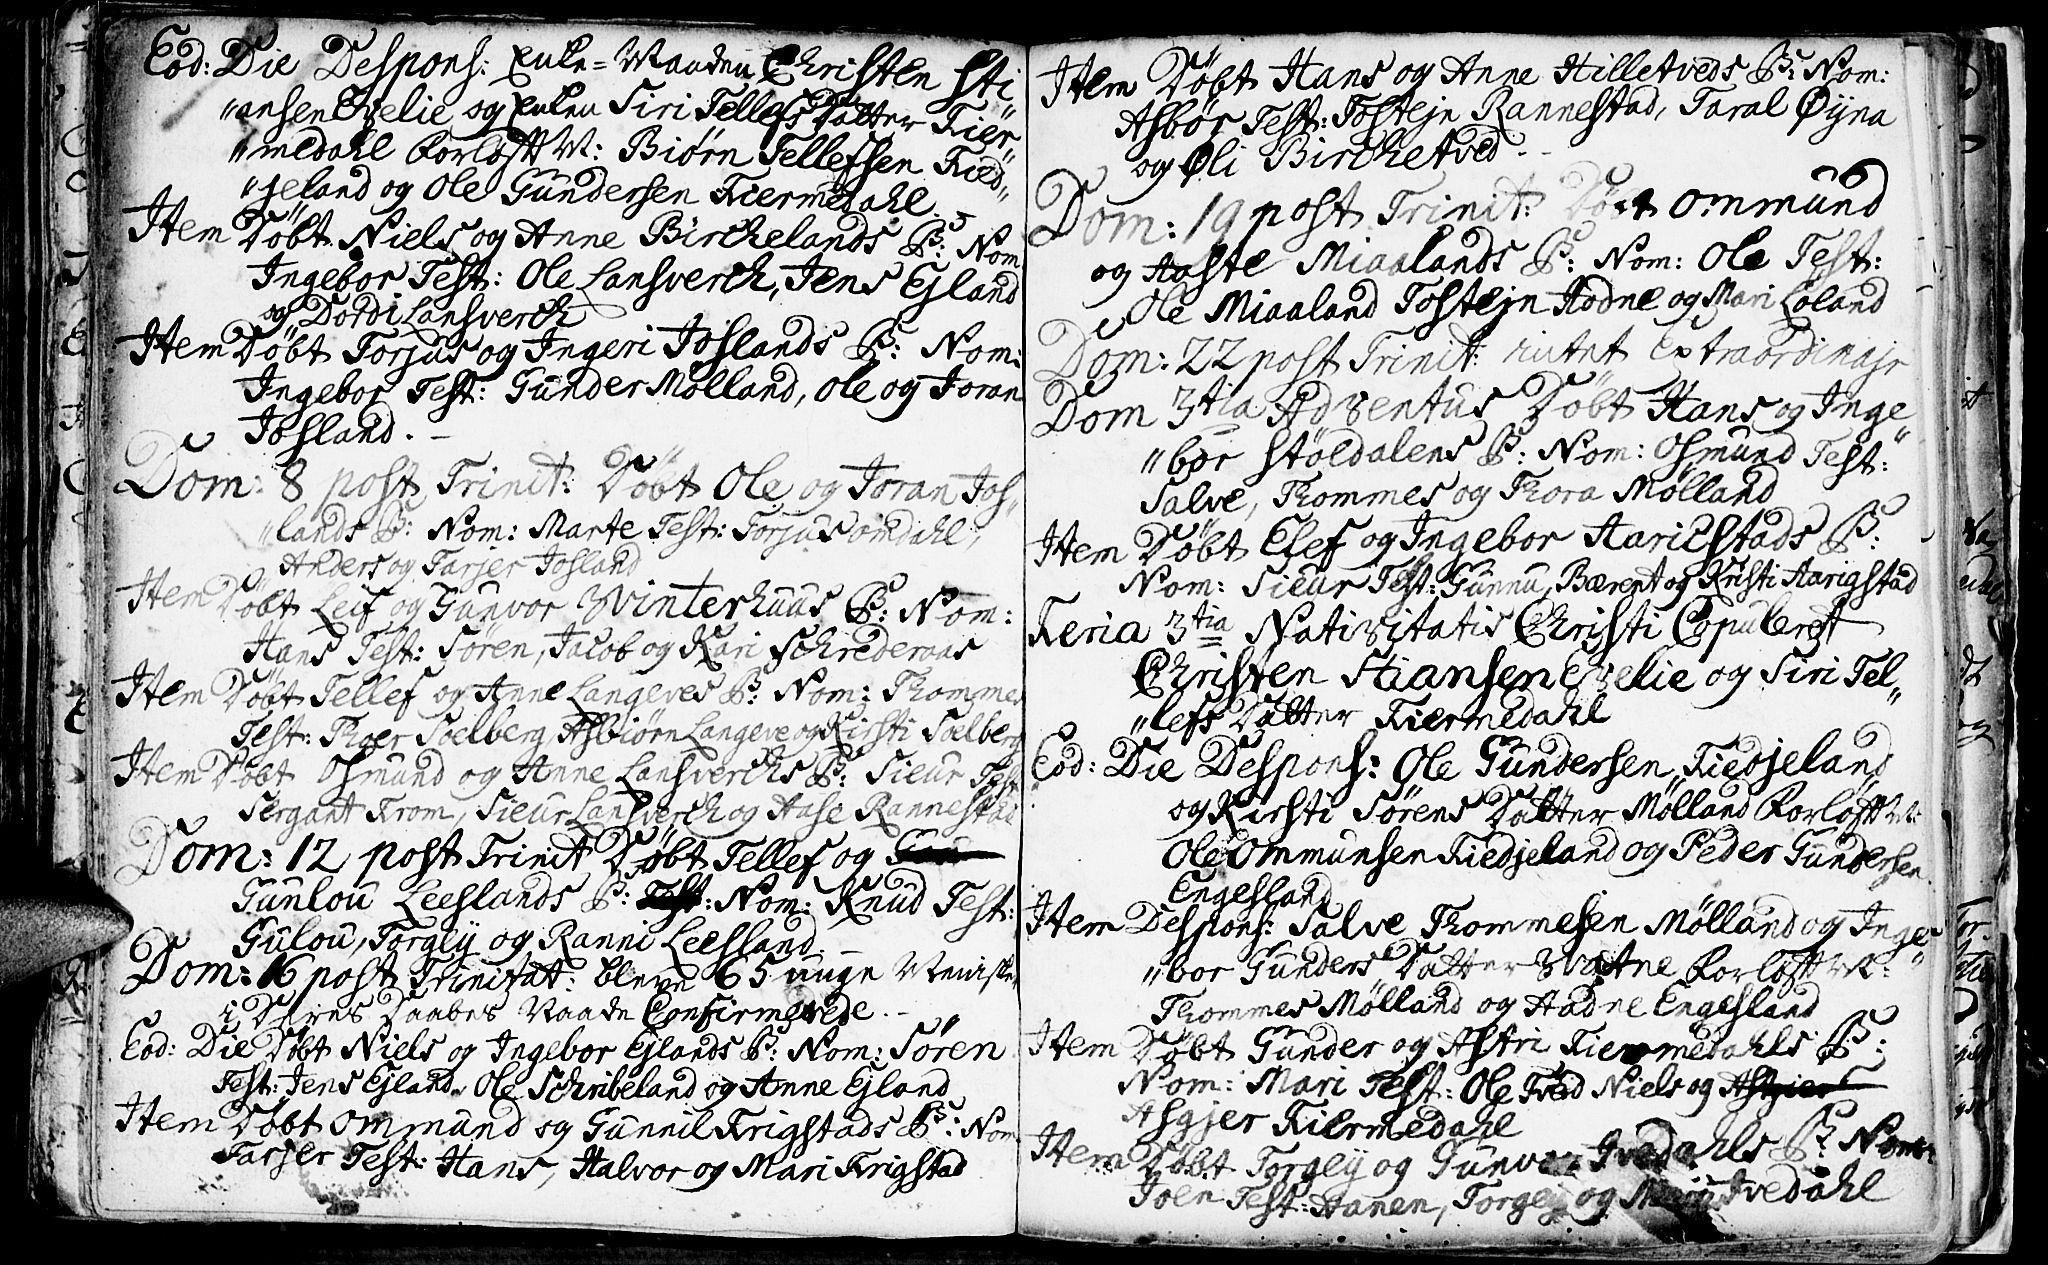 Eod: Die Despons: Enke-Manden Christen Sti
"ansen Evelie og Enken Siri Tellefs Datter Fier"
"medahl Forlofft M: Biørn Tellefsen Fied"
"jeland og Ole Gundersen Fiermedahl.
Item Døbt Niels og Anne Birchelands B: Nom
Ingebor Test: Ole Lansverch, Jens Ejland
og Dordi Lansverch
Item Døbt Torjus og Ingeri Joslands B: Nom:
Ingebor Test: Gunder Mølland, Ole og Joran
Josland.
Dom: 8 post Trinit: Døbt Ole og Joran Jos"
"lands B: Nom: Marte Test: Torjus Omdahl,
Anders og Tarjer Josland
Item Døbt Leif og Gunvor Winterhuus B: Nom:
Hans Test: Søren, Jacob og Kari Schrederaas
Item Døbt Tellef og Anne Langeves B: Nom: Thommes
Test: Thoer Soelberg, Asbiørn Langeve og Kirsti Soelberg
Item Døbt Osmund og Anne Lansverchs B: Sieur Test
Sergant From, Sieur Lansverch og Aase Rannestad
Dom: 12 post Trinit Døbt Tellef og
Gunlou Leeslands B: Test: Nom: Knud Test:
Gulou, Torgej og Ranni Leesland.
Dom: 16 post Trinitat: bleve 65 unge Menisker
i Deres Daabes Naade Confirmerede.
Eod: Die Døbt Niels og Ingebor Ejlands B: Nom: Søren
Test: Jens Ejland, Ole Schribeland og Anne Ejland
Item Døbt Ommund og Gunnil Frigstads B: Nom
Tarjer Test: Hans, Halvor og Mari Frigstad
Item Døbt Hans og Anne Hilletveds B: Nom:
Asbør Test: Tostejn Rannestad, Taral Øyna
og Øli Birchetved.
Dom: 19 post Trinit: Døbt Ommund
og Aaste Miaalands B: Nom: Ole Test:
Ole Miaaland Tostejn Hodne og Mari Løland
Dom: 22 post Trinit: intet Extraordinajr
Dom 3tia Adventus Døbt Hans og Inge"
"bor Støldalens B: Nom: Osmund Test:
Salve, Thommes og Thora Mølland
Item Døbt Elef og Ingebor Aarigstads B:
Nom: Sieur Test: Gunnu, Bærent og Kristi Aarigstad
Feria 3tia Nativitatis Christi Copuleret
Christen Stiansen Evelie og Siri Tel"
"lefs Datter Fiermedahl
Eod: Die Despons: Ole Gundersen Fiedjeland
og Kirsti Sørens Datter Mølland Forlofft M:
Ole Ommunsen Fiedjeland og Peder Gundersen
Engesland
Item Despons: Salve Thommesen Mølland og Inge"
"bor Gunders Datter Hvatne Forlofft M:
Thommes Mølland og Hadne Engesland
Item Døbt Gunder og Astri Fiermedahls B:
Nom: Mari Test: Ole Fied Niels og Asgier
Asgjer Fiermedahl
Item Døbt Torgej og Gunvor Ivedahls B: Nom:
Joen Test: Aanen, Torgej og Mari Ivedahl